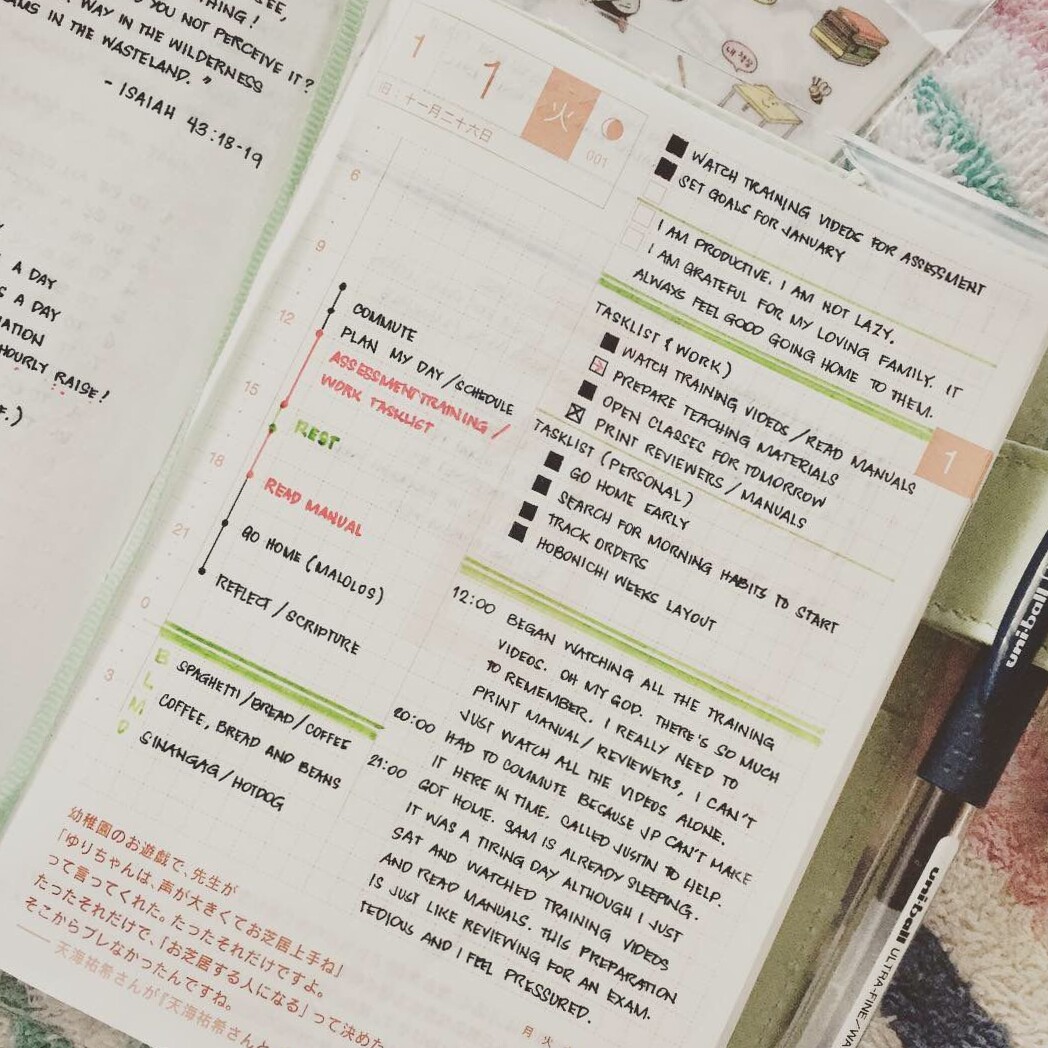 THING!
YOU NOT PERCEIVE IT?
WAY IN THE WILDERNESS
IN THE WASTELAND."
- ISAIAH 43:18-19
A DAY
A DAY
HOURLY RAISE!
1
1
火
旧:十一月二十六日
001
6
9
12
15
18
21
0
3
COMMUTE
PLAN MY DAY/SCHEDULE
ASSESSMENT TRAINING /
WORK TASKLIST
REST
READ MANUAL
GO HOME (MALOLOS)
REFLECT/SCRIPTURE
B
L
M
D
SPAGHETTI/BREAD/COFFEE
COFFEE, BREAD AND BEANS
SINANGAG/HOTDOG
WATCH TRAINING VIDEOS FOR ASSESSMENT
SET GOALS FOR JANUARY
I AM PRODUCTIVE. I AM NOT LAZY.
I AM GRATEFUL FOR MY LOVING FAMILY. IT
ALWAYS FEEL GOOD GOING HOME TO THEM.
TASKLIST (WORK)
WATCH TRAINING VIDEOS/READ MANUALS
PREPARE TEACHING MATERIALS
OPEN CLASSES FOR TOMORROW
PRINT REVIEWERS/MANUALS
TASKLIST (PERSONAL)
GO HOME EARLY
SEARCH FOR MORNING HABITS TO START
TRACK ORDERS
HOBONICHI WEEKS LAYOUT
1
12:00 BEGAN WATCHING ALL THE TRAINING
VIDEOS. OH MY GOD. THERE'S SO MUCH
TO REMEMBER. I REALLY NEED TO
PRINT MANUAL/REVIEWERS, I CAN'T
JUST WATCH ALL THE VIDEOS ALONE.
20:00 HAD TO COMMUTE BECAUSE JP CAN'T MAKE
IT HERE IN TIME. CALLED JUSTIN TO HELP.
21:00 GOT HOME. SAM IS ALREADY SLEEPING.
IT WAS A TIRING DAY ALTHOUGH I JUST
SAT AND WATCHED TRAINING VIDEOS
AND READ MANUALS. THIS PREPARATION
IS JUST LIKE REVIEWING FOR AN EXAM.
TEDIOUS AND I FEEL PRESSURED.
幼稚園のお遊戯で、先生が
「ゆりちゃんは、声が大きくてお芝居上手ね」
って言ってくれた。たったそれだけですよ。
たったそれだけで、「お芝居する人になる」って決めた
そこからブレなかったんですね。
——天海祐希さんが『天海祐希さんと
月 火
uni-ball
uni-ball ULTRA-FINE/WA
내책상